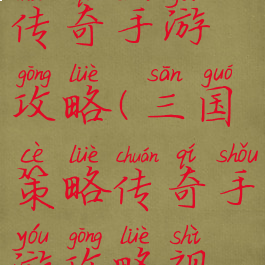 传奇手游
gōng lüè sān guó
攻略(三国
cè lüè chuán qí shǒu
策略传奇手
yóu gōng lüè shì
游攻略视